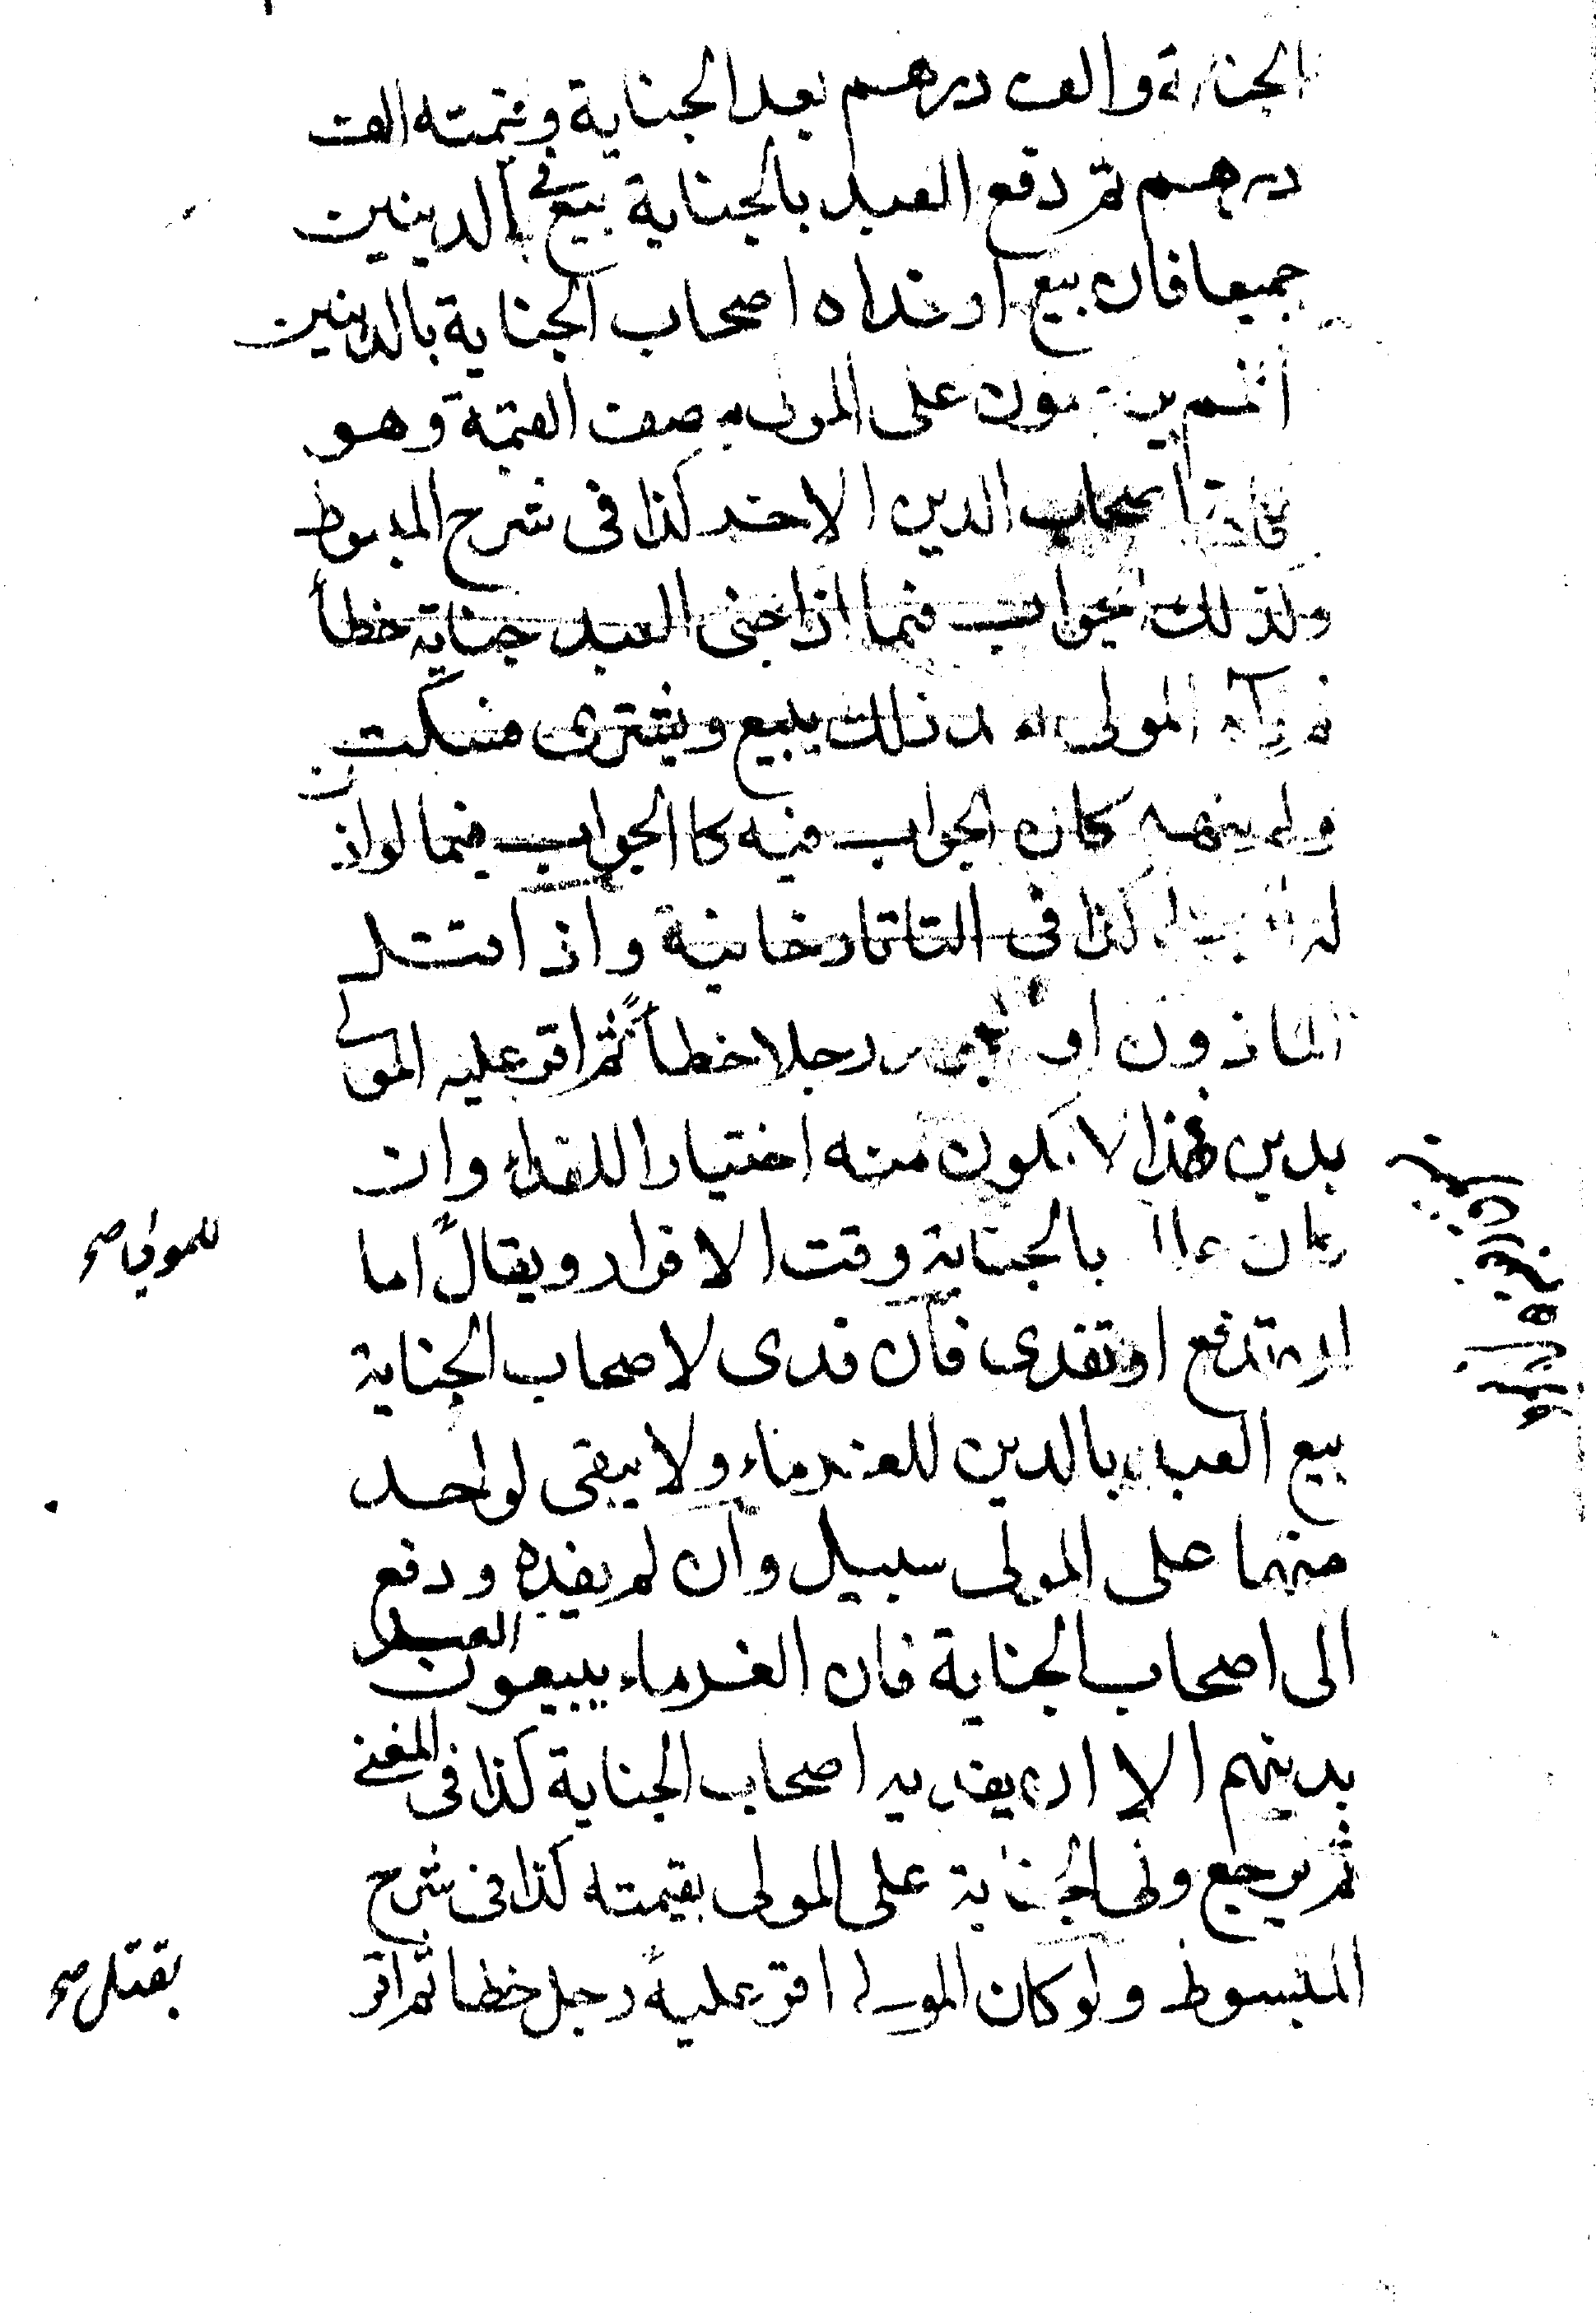 الجناية والف درهم بعد الجناية وقيمته الف
درهم ثم دفع العبد بالجناية بيع في الدينين
جميعا فان بيع او فداه اصحاب الجناية بالدينين
على المولى بنصف القيمة وهو
اصحاب الدين الاخر كذا في شرح المبسوط
وكذلك الجواب فيما اذا جنى العبد جناية خطأ
المولى بعد ذلك يبيع ويشترى فسكت
ولم ينهه كان الجواب فيه كا الجواب فيما لو اذن
له كذا في التاتارخانية واذا قتل
الماذون او رجلا خطأ ثم اقر عليه المولى
بدين فهذا لا يكون منه اختيارا للفداء وان
كان عالما بالجناية وقت الاقرار ويقال اما
للمولى صح
ان تدفع او تفدى فان فدى لاصحاب الجناية
بيع العبد بالدين للغرماء ولا يبقى لواحد
منهما على المولى سبيل وان لم يفده ودفع
الى اصحاب الجناية فان الغرماء يبيعون العبد
بدينهم الا ان يفديه اصحاب الجناية كذا في المغني
ثم يرجع ولى الجناية على المولى بقيمته كذا في شرح
المبسوط ولو كان المولى اقر عليه رجل خطا ثم اقر
بقتل صح